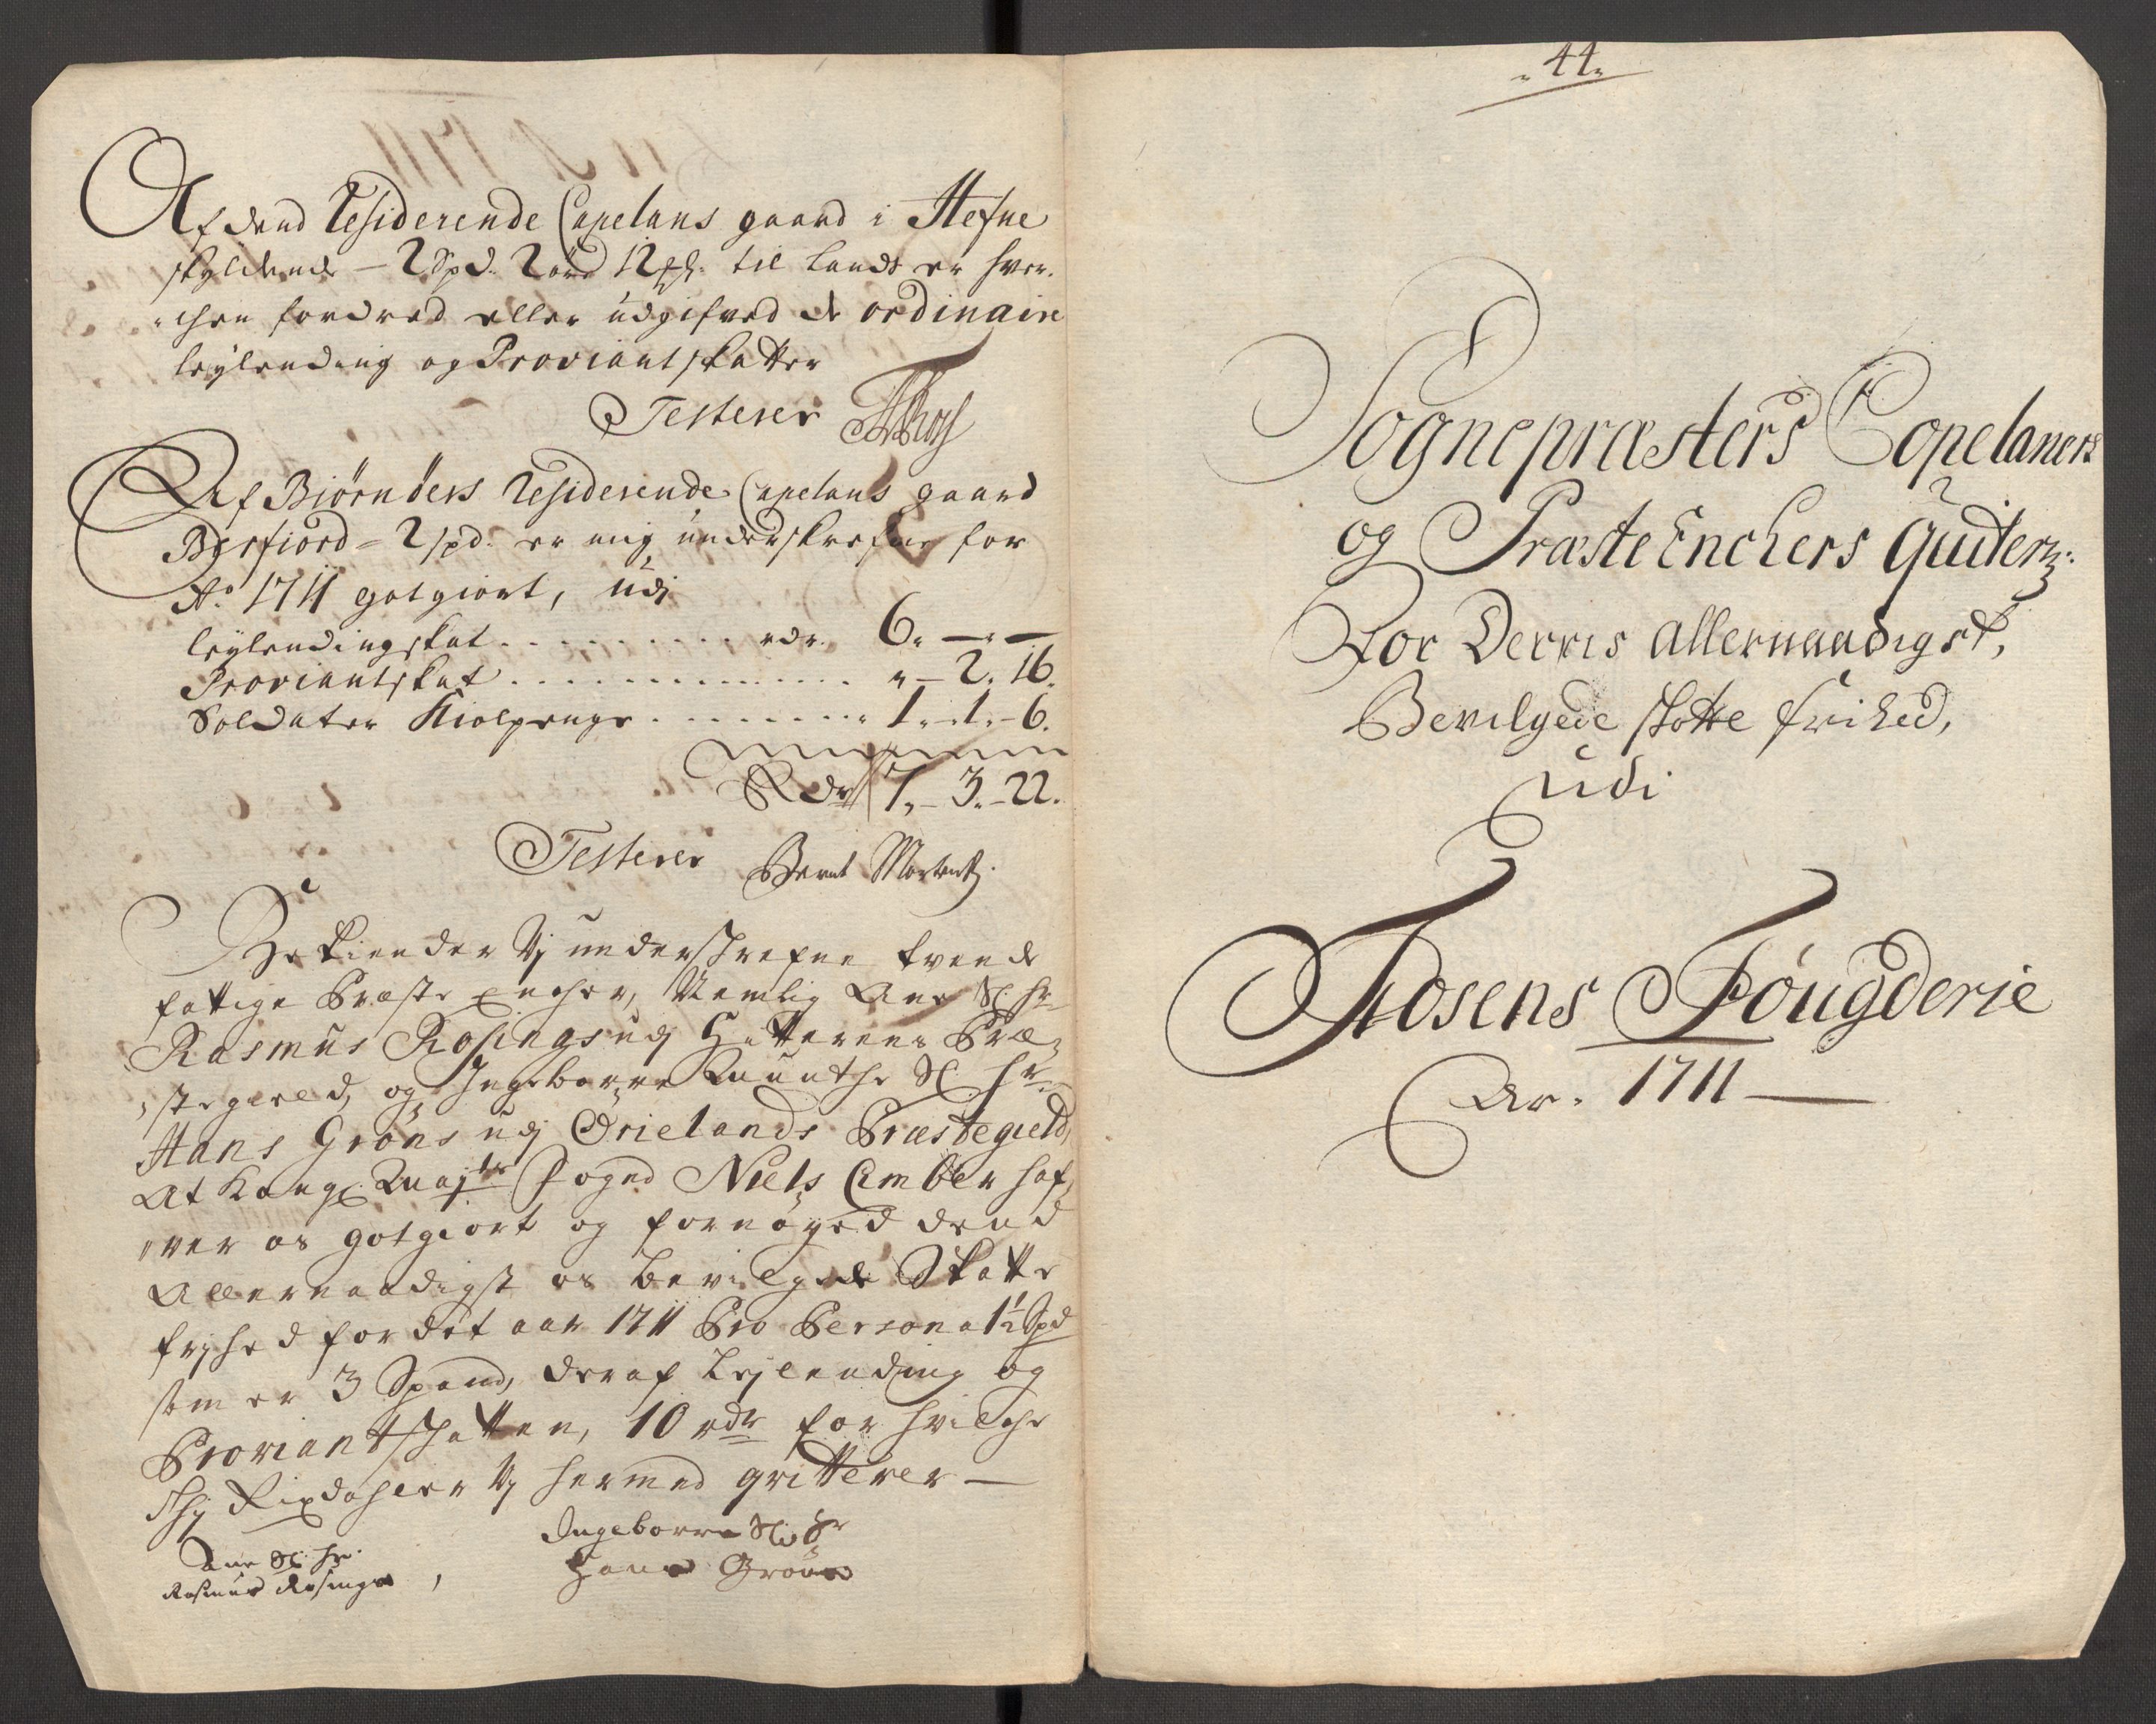 Af dend Residerende Capelans gaard i Hefne
skyldende - 2 Spd. 2 øre 12 til Lands er hver-
chen fordred eller udgifved de ordinaire
leylending og Proviantskatter
Testerer
Af Biørnöers Residerende Capelans gaard
Berfiord - 2 spd. er mig underskrefne for
Ao 1711 gotgiort, udj
leylendingskat . . . . . . . . . rdr. 6. — . —
Proviantskat . . . . . . . . . . . . „ — 2. 16.
Soldater Kiolpenge . . . . . . . . 1. - 1. - 6.
Rdr 7. - 3. - 22.
Testerer Bernt Mortentz.
Bekiender Vj underschrefne tvende
fattige Præste Encher, Nemlig Ane Sl. Hr
Rasmus Rosings udj Hitterens Præ-
stegield, og Ingeborre Sl. Hr
Hans Gröns udj Ørielands Præstegield,
At Kongl. Mayts Foged Niels Cimber haf-
ver os gotgiort og fornöyed dend
Allernaadigst os bevilgede Skatte
fryhed for det aar 1711 Pro Persona 1½ Spd
som er 3 Spand, deraf Lejlending og
Proviantschatten, 10 rdr for hvilche
Thj Rixdahler Vj hermed qvitterer —
Ane Sl. Hr.
Rasmus Rosings,
Ingeborre Sl. Hr
Hans Gröns
„ 44 „
Sognepræsters Copelaners
og Præste Enchers Quiter:
For Derris allernaadigst,
Bevilgede skatte frihed,
udi
Fosens Fougderie
Ao. 1711 —